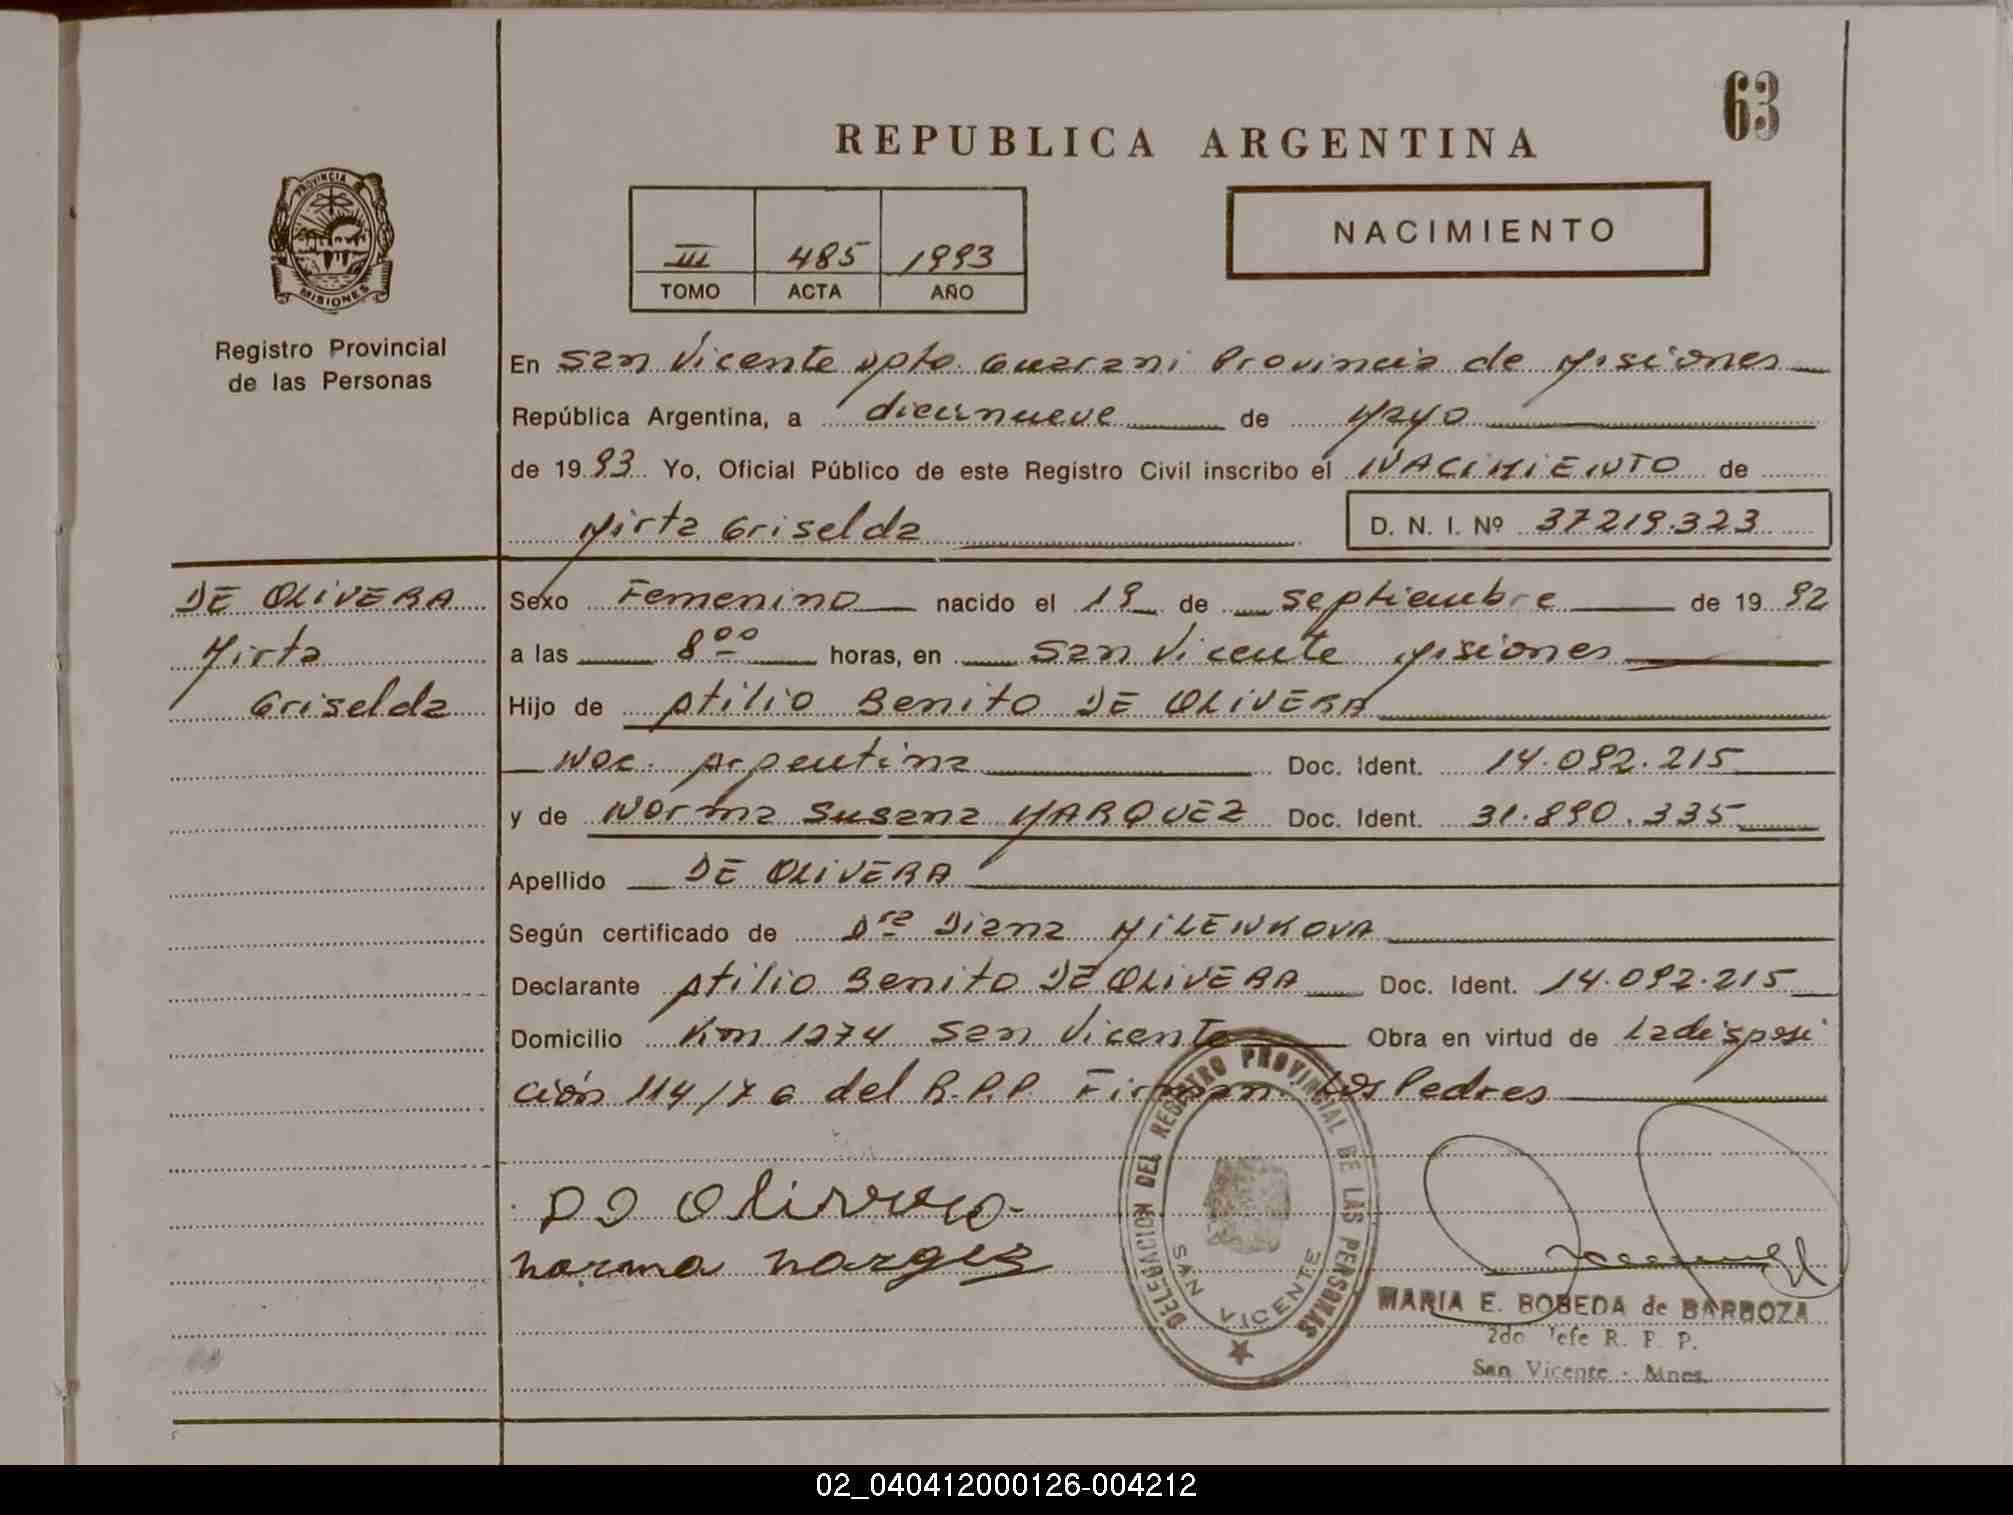 63
REPUBLICA ARGENTINA
PROVINCIA DE
MISIONES
III 485 1993
TOMO ACTA AÑO
NACIMIENTO
Registro Provincial
de las Personas
En San Vicente Dpto. Guarani Provincia de Misiones
República Argentina, a diecinueve de Mayo
de 1993 Yo, Oficial Público de este Registro Civil inscribo el NACIMIENTO de
Mirta Griselda D. N. I. Nº 37219.323
DE OLIVERA
Mirta
Griselda
Sexo Femenino nacido el 19 de septiembre de 1992
a las 8°° horas, en San Vicente Misiones
Hijo de Atilio Benito DE OLIVERA
Nac. Argentina Doc. Ident. 14.092.215
y de Norma Susana MARQUEZ Doc. Ident. 31.890.335
Apellido DE OLIVERA
Según certificado de Dra Diana MILENKOVA
Declarante Atilio Benito DE OLIVERA Doc. Ident. 14.092.215
Domicilio Km 1274 San Vicente Obra en virtud de la disposi
ción 114/76 del R.P.P. Firman Los Padres
De Olivera
norma
DELEGACION DEL REGISTRO PROVINCIAL DE LAS PERSONAS
SAN VICENTE
MARIA E. BOBEDA de BARBOZA
2do Jefe R. P. P.
San Vicente - Mnes.
02_040412000126-004212